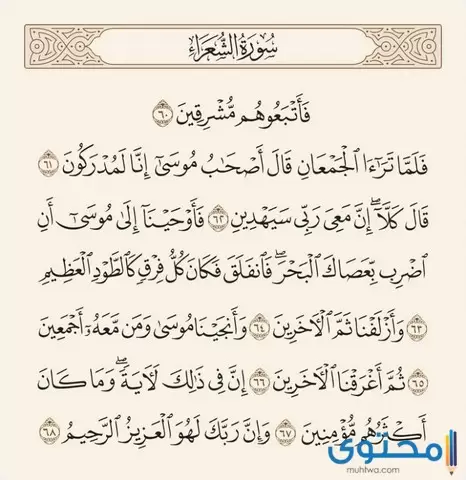 سُورَةُ الشُّعَرَاءِ
فَأَتْبَعُوهُم مُّشْرِقِينَ ٦٠
فَلَمَّا تَرَٰٓءَا ٱلْجَمْعَانِ قَالَ أَصْحَٰبُ مُوسَىٰٓ إِنَّا لَمُدْرَكُونَ ٦١
قَالَ كَلَّآ ۖ إِنَّ مَعِىَ رَبِّى سَيَهْدِينِ ٦٢ فَأَوْحَيْنَآ إِلَىٰ مُوسَىٰٓ أَنِ
ٱضْرِب بِّعَصَاكَ ٱلْبَحْرَ ۖ فَٱنفَلَقَ فَكَانَ كُلُّ فِرْقٍ كَٱلطَّوْدِ ٱلْعَظِيمِ
٦٣ وَأَزْلَفْنَا ثَمَّ ٱلْءَاخَرِينَ ٦٤ وَأَنجَيْنَا مُوسَىٰ وَمَن مَّعَهُۥٓ أَجْمَعِينَ
٦٥ ثُمَّ أَغْرَقْنَا ٱلْءَاخَرِينَ ٦٦ إِنَّ فِى ذَٰلِكَ لَءَايَةً ۖ وَمَا كَانَ
أَكْثَرُهُم مُّؤْمِنِينَ ٦٧ وَإِنَّ رَبَّكَ لَهُوَ ٱلْعَزِيزُ ٱلرَّحِيمُ ٦٨
محتوى
muhtwa.com